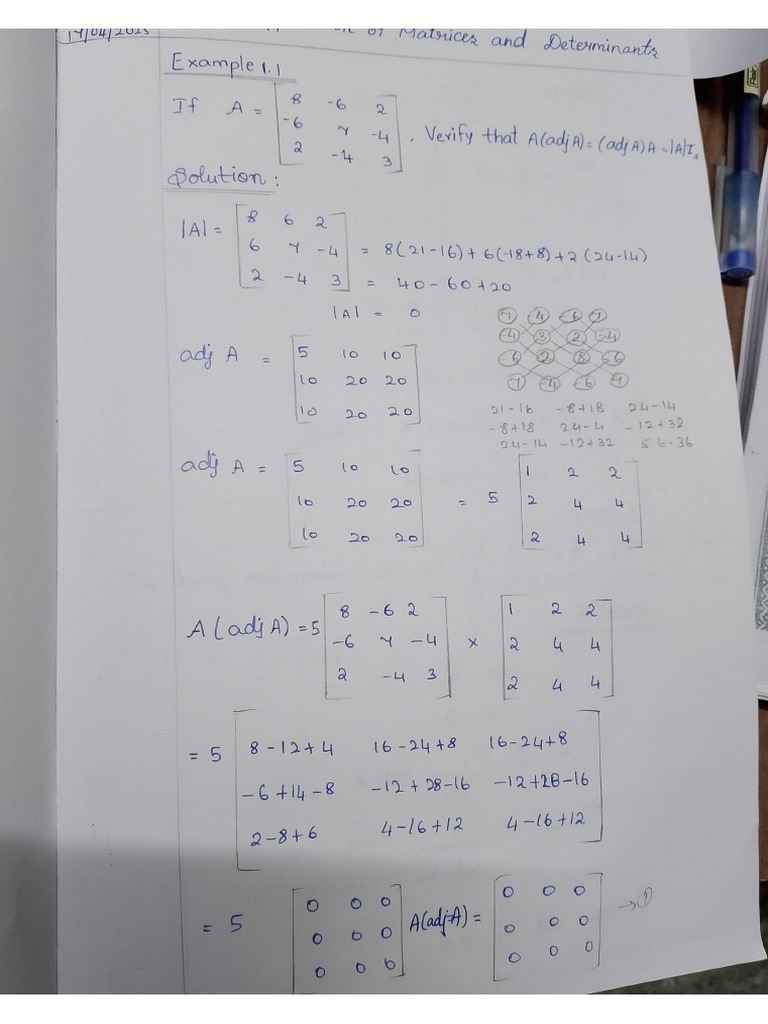 17/04/2025 of Matrices and Determinants
Example 1.1
If A = [ 8 -6 2
-6 7 -4
2 -4 3 ] , Verify that A(adj A) = (adj A) A = |A| I₃
Solution :
|A| = [ 8 6 2
6 7 -4
2 -4 3 ] = 8(21-16) + 6(-18+8) + 2(24-14)
= 40 - 60 + 20
|A| = 0
7 -4 -6 7
-4 3 2 -4
-6 2 8 -6
7 -4 -6 7
adj A = [ 5 10 10
10 20 20
10 20 20 ]
21-16 -8+18 24-14
-8+18 24-4 -12+32
24-14 -12+32 56-36
adj A = [ 5 10 10
10 20 20
10 20 20 ] = 5 [ 1 2 2
2 4 4
2 4 4 ]
A (adj A) = 5 [ 8 -6 2
-6 7 -4
2 -4 3 ] × [ 1 2 2
2 4 4
2 4 4 ]
= 5 [ 8-12+4 16-24+8 16-24+8
-6+14-8 -12+28-16 -12+28-16
2-8+6 4-16+12 4-16+12 ]
= 5 [ 0 0 0
0 0 0
0 0 0 ] A(adj A) = [ 0 0 0
0 0 0
0 0 0 ] → ①